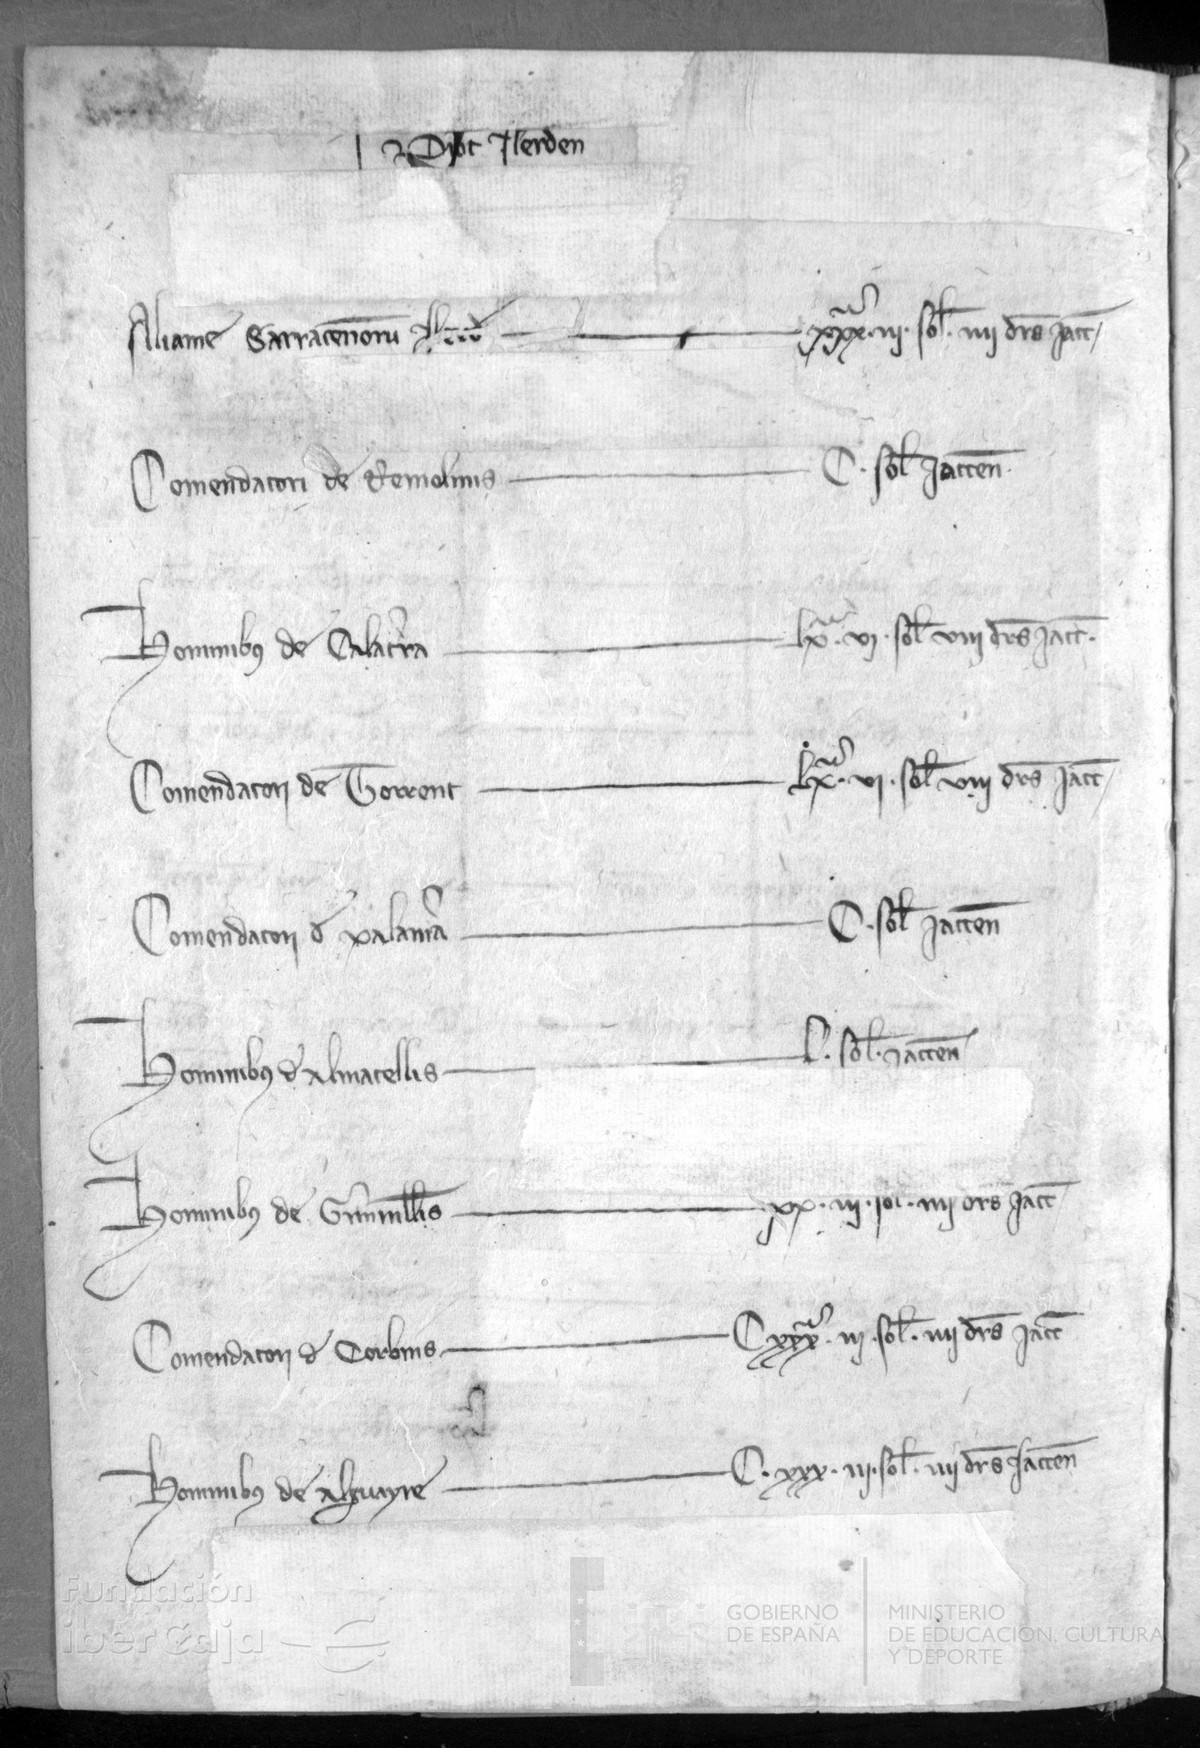 Ilerden
Aliame Sarracenoru xxx iij sol iiij drs Jacc
Comendatori de Remolinis C sol Jaccen
Hominibus de Calatra Lx vi sol viij drs Jacc
Comendatori de Torrent Lx vi sol viij drs Jacc
Comendatori d C sol Jaccen
Hominibus d Almacellis L sol Jaccen
Hominibus de xx iij sol iiij drs Jacc
Comendatori d Corbins C xxx iij sol iiij drs Jacc
Hominibus de Alguayre C xxx iij sol iiij drs Jaccen
Fundación
iberCaja
GOBIERNO
DE ESPAÑA
MINISTERIO
DE EDUCACIÓN, CULTURA
Y DEPORTE